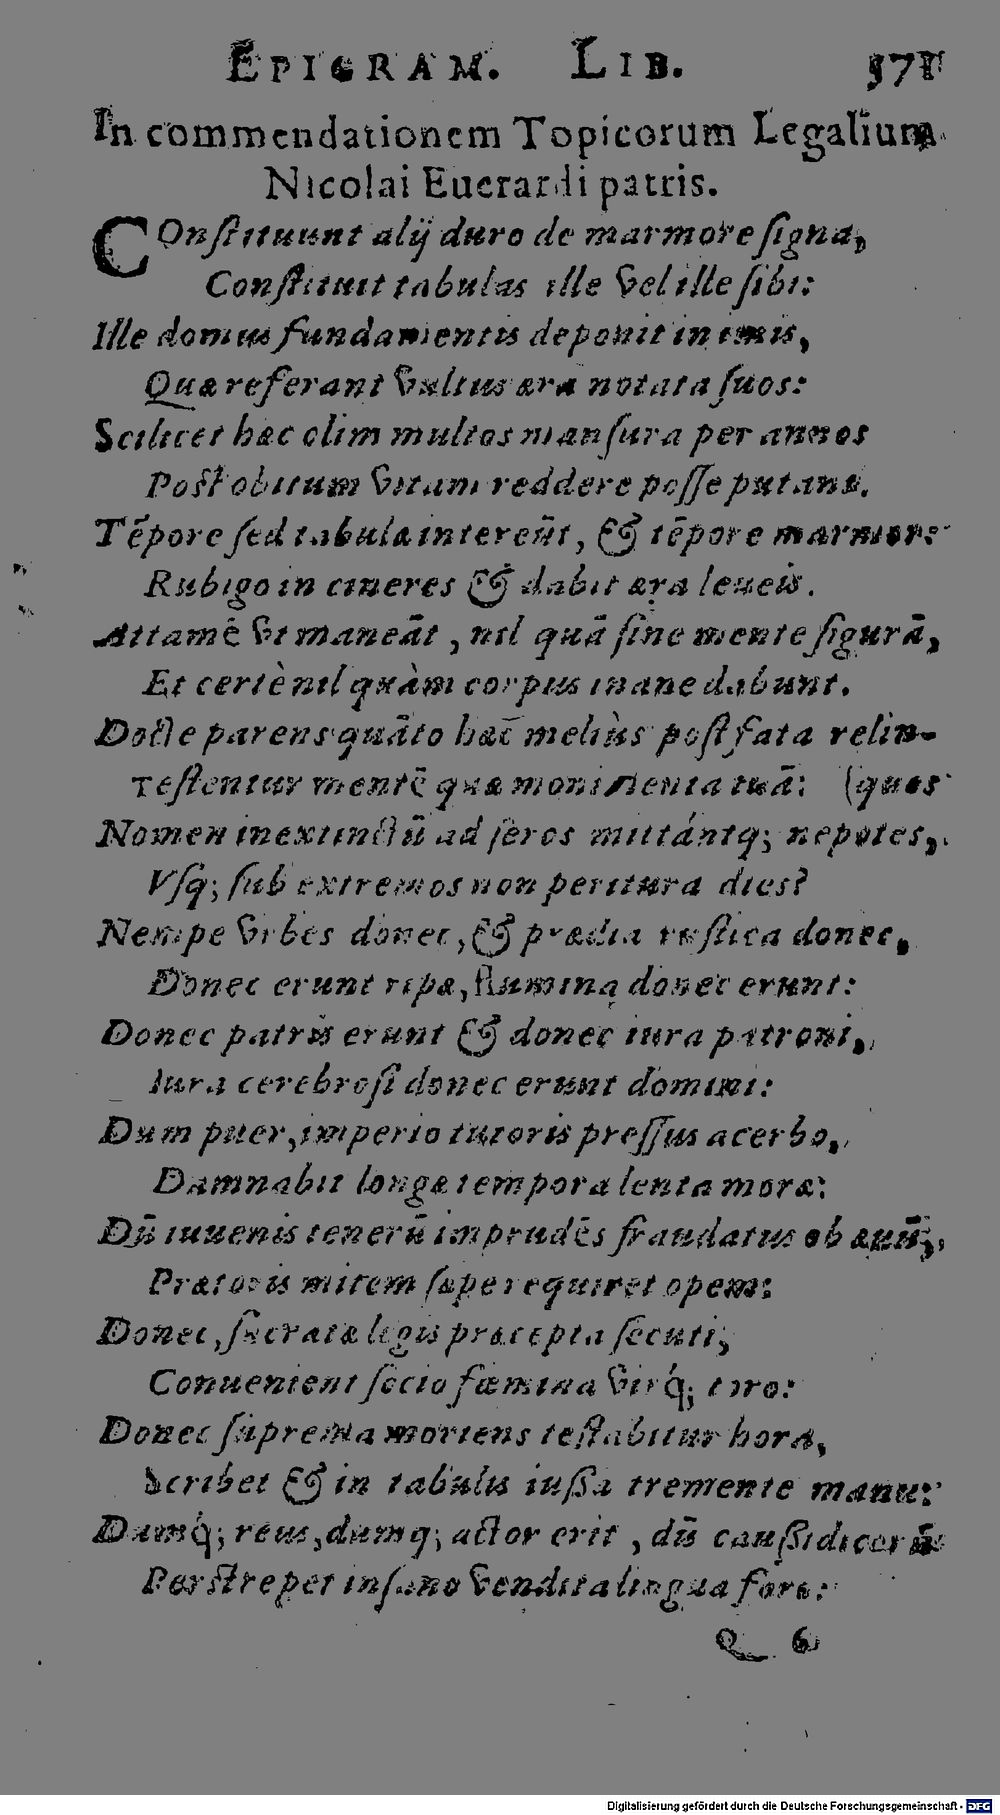 EPIGRAM. LIB. 371
In commendationem Topicorum Legalium
Nicolai Euerardi patris.
COnſtituunt alij duro de marmore ſigna,
Conſtituit tabulas ille vel ille ſibi:
Ille domus fundamentis deponit in imis,
Quæ referant vultus æra notata ſuos:
Scilicet hæc olim multos manſura per annos
Poſt obitum vitam reddere poſſe putant.
Tēpore ſed tabulæ intereūt, & tēpore marmor:
Rubigo in cineres & dabit æra leueis.
Attamē vt maneāt, nil quā ſine mente figurā,
Et certè nil quàm corpus inane dabunt.
Docte parens quāto hæc meliùs poſt fata relin-
Teſtentur mentē quæ monimenta tuā: (quos
Nomen inextinctū ad ſeros mittántq; nepotes,
Vſq; ſub extremos non peritura dies?
Nempe vrbes donec, & prædia ruſtica donec,
Donec erunt ripæ, flumina donec erunt:
Donec patris erunt & donec iura patroni,
Iura cerebroſi donec erunt domini:
Dum puer, imperio tutoris preſſus acerbo,
Damnabit longæ tempora lenta moræ:
Dū iuuenis tenerū imprudēs fraudatus ob æuū,
Prætoris mitem ſæpe requiret opem:
Donec, ſacratæ legis præcepta ſecuti,
Conuenient ſocio fæmina virq́; toro:
Donec ſuprema moriens teſtabitur hora,
Scribet & in tabulis iuſſa tremente manu:
Dumq́; reus, dumq; actor erit, dū cauſſidicorū
Perſtrepet inſano vendita lingua foro:
Q 6
Digitalisierung gefördert durch die Deutsche Forschungsgemeinschaft - DFG